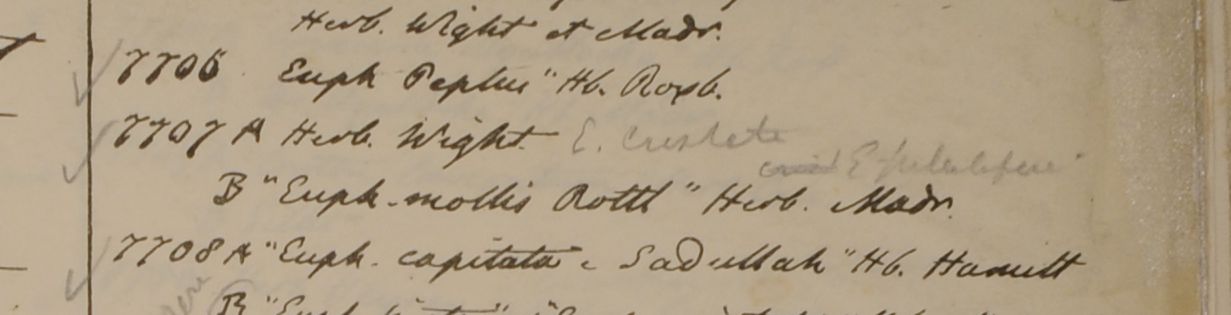 Herb. Wight et Madr.
7706 Euph Peplus" Hb. Roxb.
7707 A Herb. Wight. E. cristata
B "Euph. mollis Rottl" Herb. Madr.
7708 A "Euph. capitata e Sadullah" Hb. Hamilt
B "Euph.